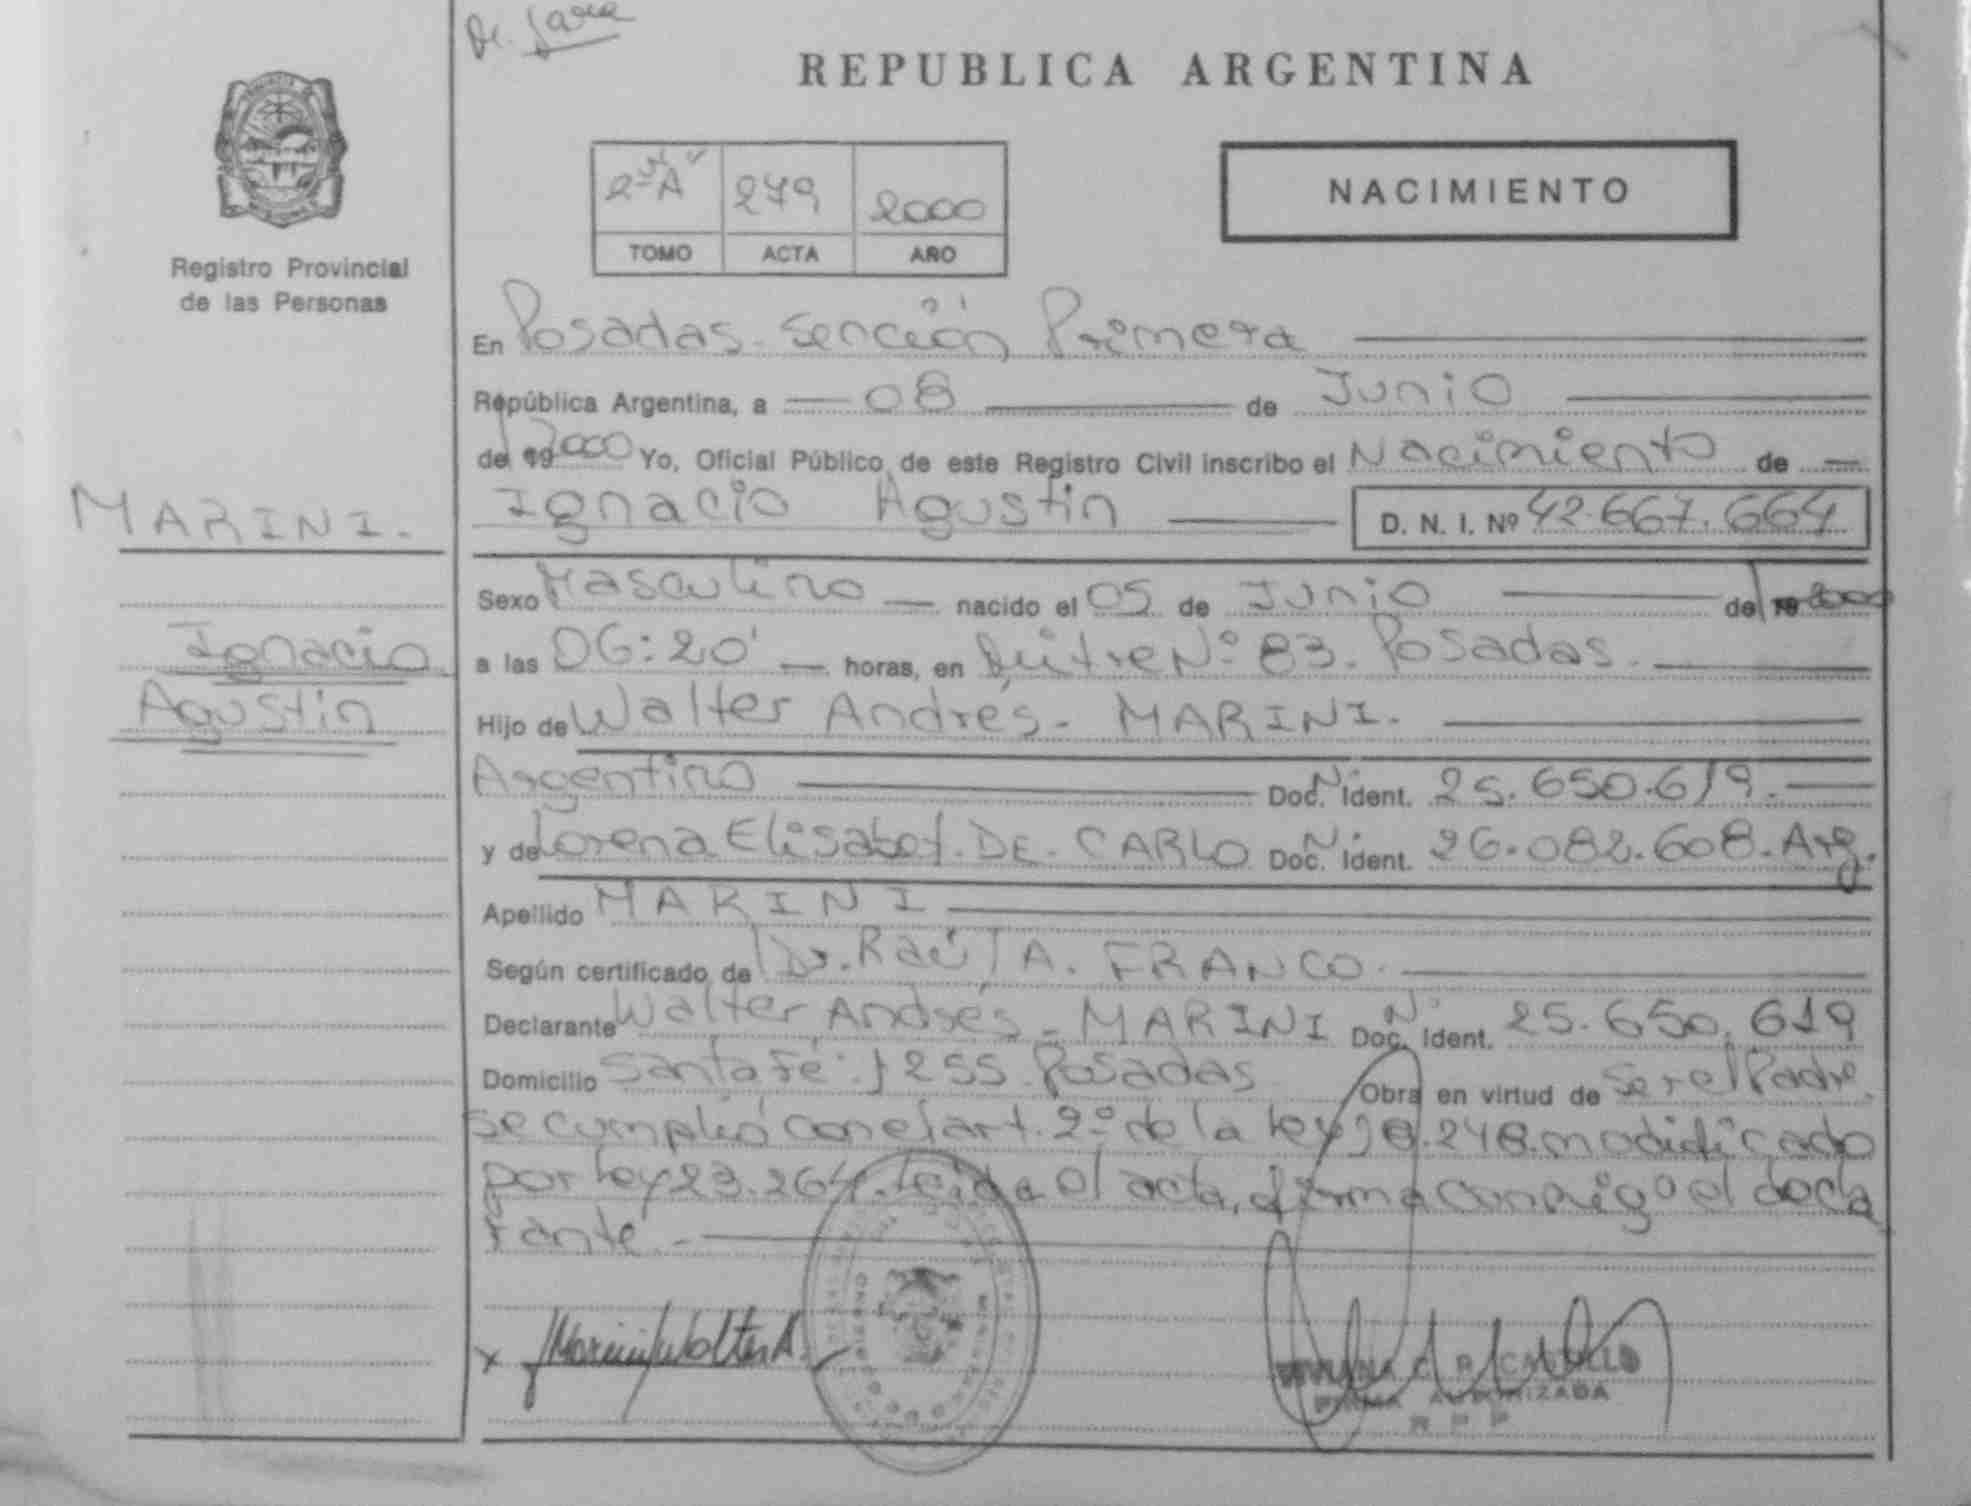 De.
REPUBLICA ARGENTINA
2º A 279 2000
TOMO ACTA AÑO
NACIMIENTO
Registro Provincial
de las Personas
En Posadas. Sección Primera
República Argentina, a 08 de Junio
de 19 2000 Yo, Oficial Público de este Registro Civil inscribo el Nacimiento de
MARINI.
Ignacio Agustin D. N. I. Nº 42.667.664
Sexo Masculino nacido el 05 de Junio de 19 2000
Ignacio
Agustin
a las 06:20' horas, en Nº 83. Posadas.
Hijo de Walter Andrés - MARINI.
Argentino Doc. Nº Ident. 25.650.619.
y de Lorena Elisabet. DE. CARLO Doc. Nº Ident. 26.082.608. Arg.
Apellido MARINI
Según certificado de Dr. Raúl A. FRANCO.
Declarante Walter Andrés - MARINI Doc. Nº Ident. 25.650.619
Domicilio Santa Fé: 1255 Posadas Obra en virtud de ser el Padre.
se cumplió con el art. 2º de la Ley 18.248. modificado
por Ley 23.264. Leída el acta, firma conmigo el decla
rante.-
x Marini Walter A.
C. P. CASTILLO
FIRMA AUTORIZADA
R P P